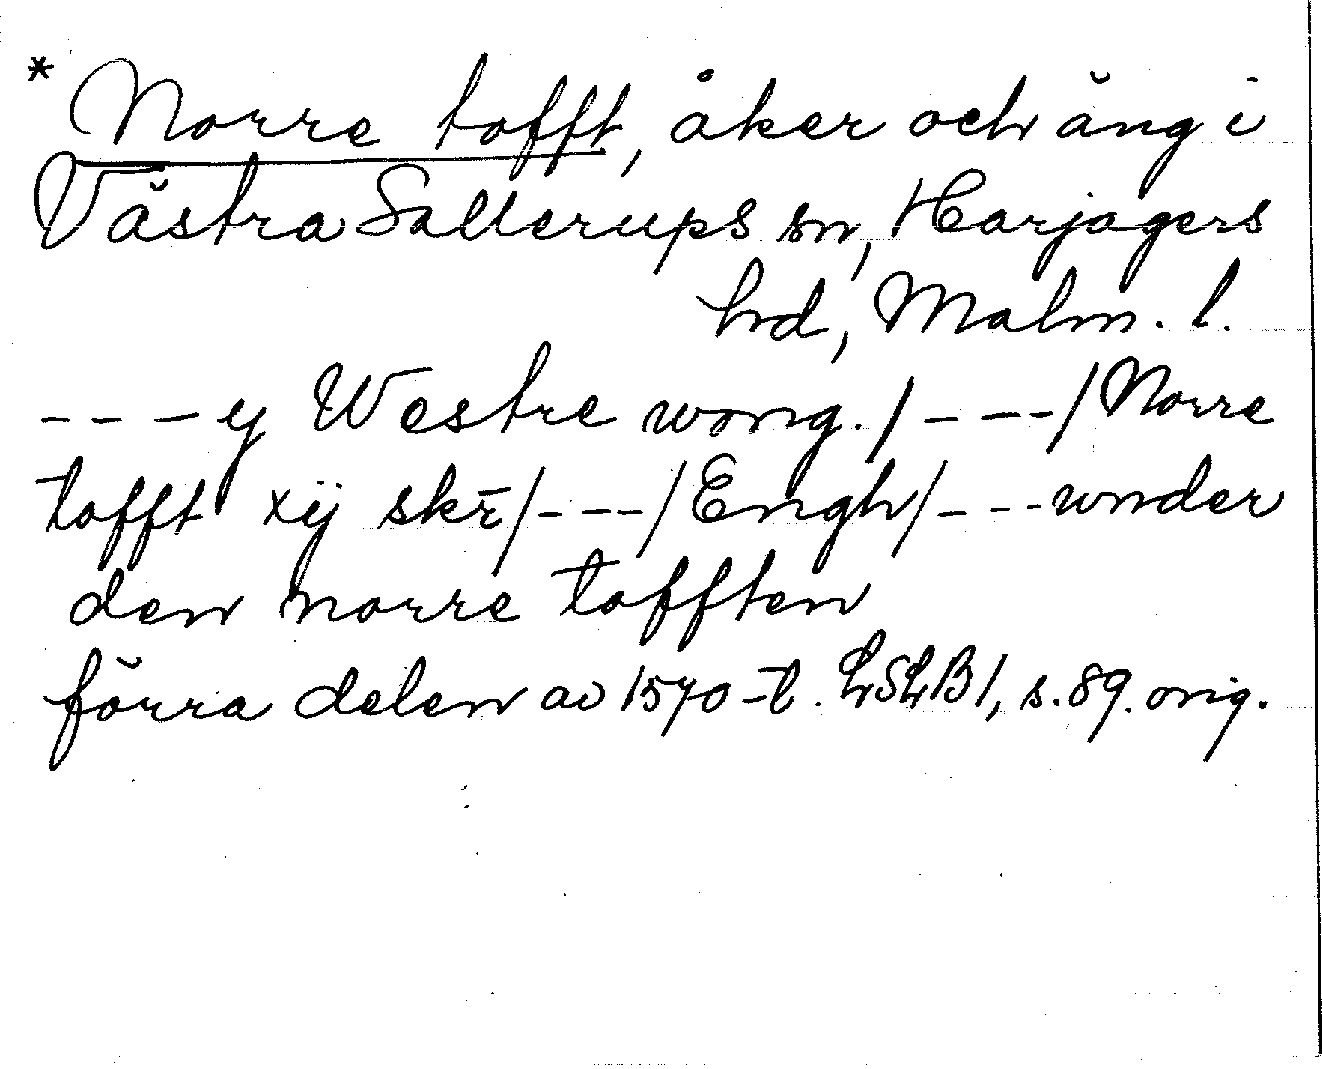 * Norre tofft, åker och äng i
Västra Sallerups sn, Harjagers
hd, Malm. l.
---y Westre wong./---/Norre
tofft xij skr̄/---/Engh/---wnder
den norre tofften
förra delen av 1570-t. LSLB1, s. 89. orig.